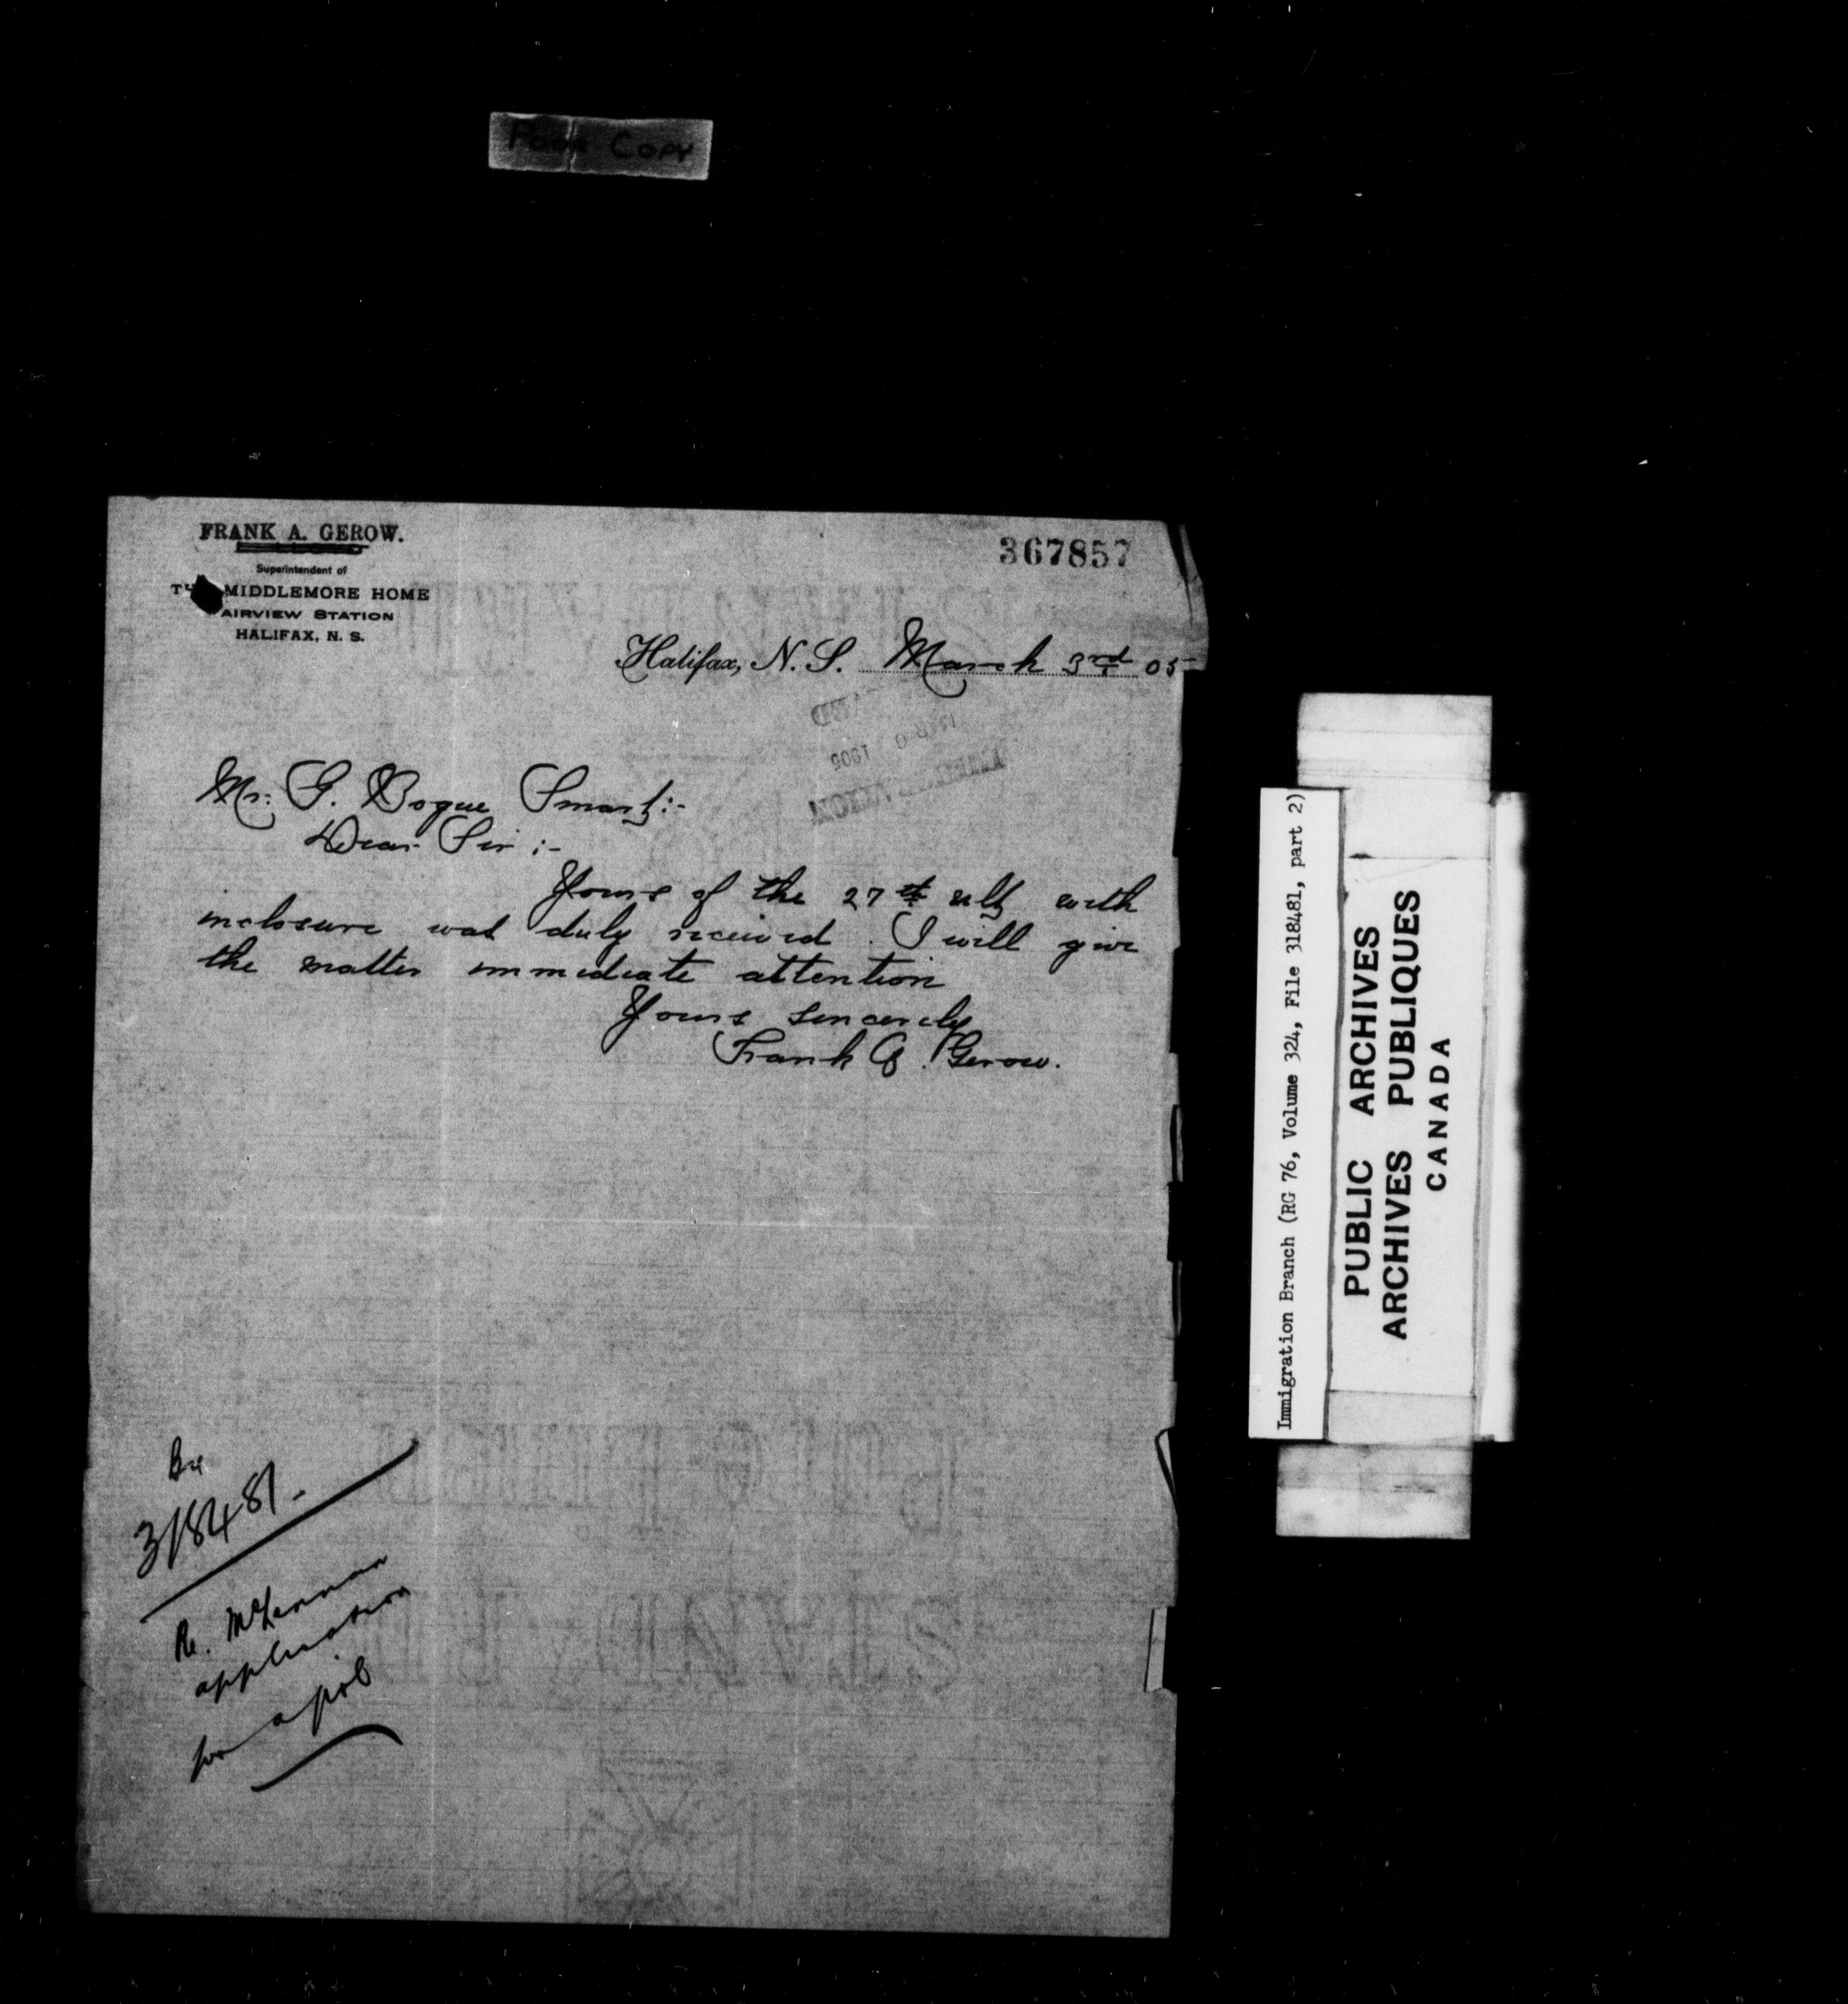 Poor Copy
FRANK A. GEROW.
Superintendent of
MIDDLEMORE HOME
AIRVIEW STATION
HALIFAX, N. S.
367857
Halifax, N. S. March 3rd 05
Mr. G. Bogue Smart:-
Dear Sir :-
Yours of the 27th ult with
inclosure was duly received. I will give
the matter immediate attention
Yours sincerely
Frank A. Gerow.
318481.
Re. McLennan
application
for a girl
Immigration Branch (RG 76, Volume 324, File 318481, part 2)
PUBLIC ARCHIVES
ARCHIVES PUBLIQUES
CANADA